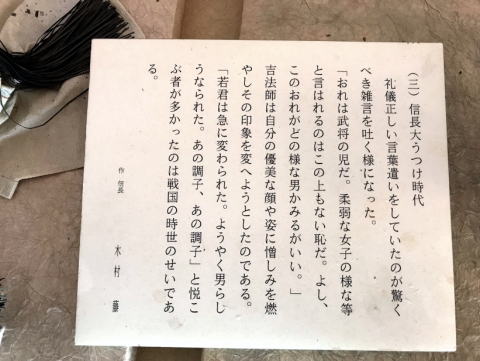 (三) 信長大うつけ時代
礼儀正しい言葉遣いをしていたのが驚く
べき雑言を吐く様になった。
「おれは武将の児だ。柔弱な女子の様な等
と言はれるのはこの上もない恥だ。よし、
このおれがどの様な男かみるがいい。」
吉法師は自分の優美な顔や姿に憎しみを燃
やしその印象を変へようとしたのである。
「若君は急に変わられた。ようやく男らし
うなられた。あの調子、あの調子」と悦こ
ぶ者が多かったのは戦国の時世のせいであ
る。
作 信長 木村 藤